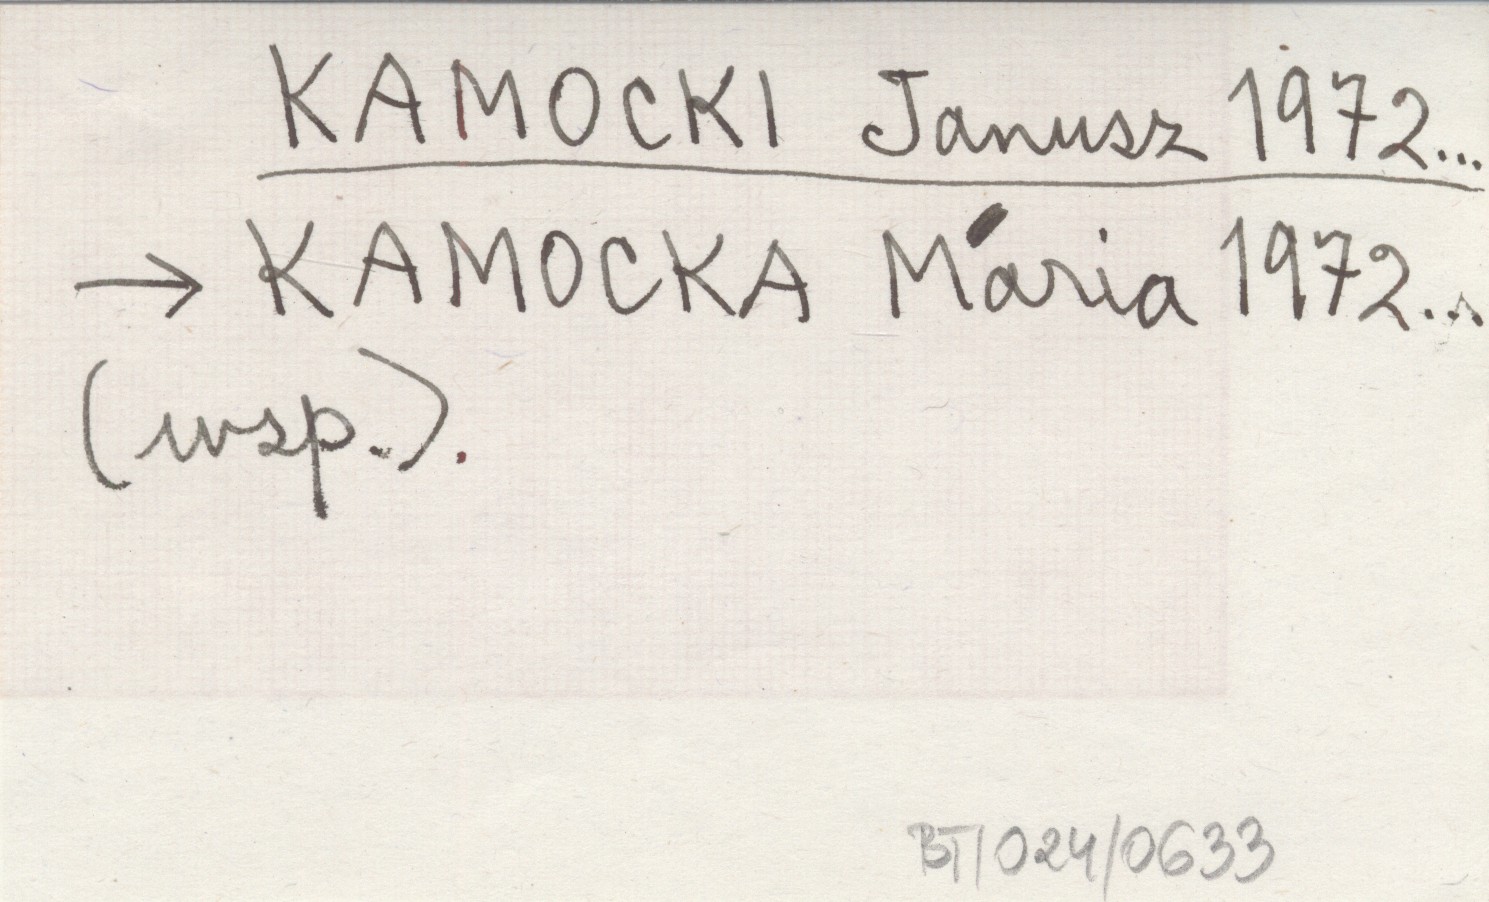 KAMOCKI Janusz 1972...
→ KAMOCKA Maria 1972...
(wsp.).
BT/024/0633